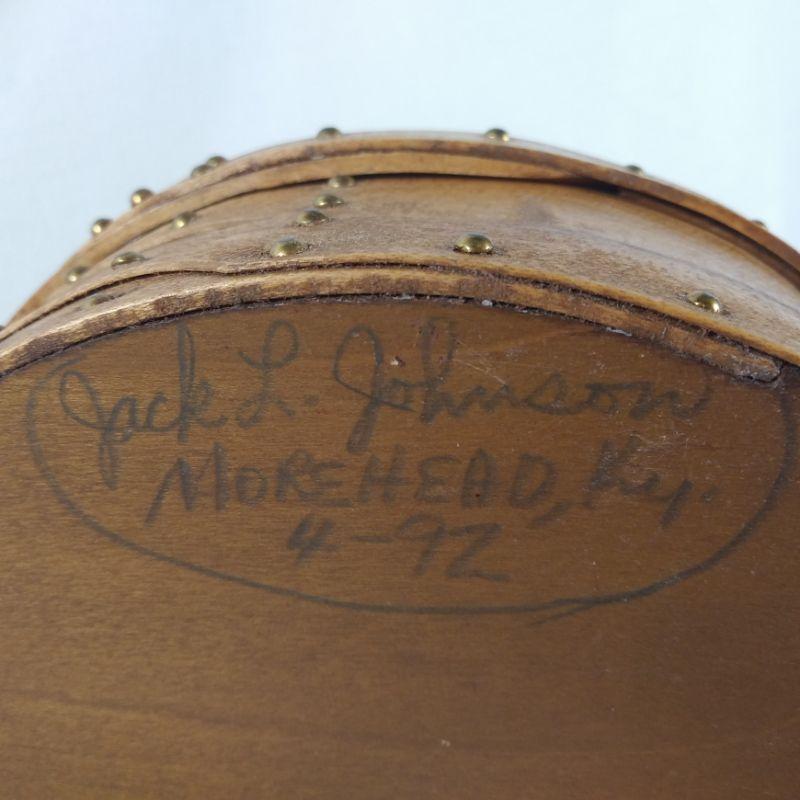 Jack L. Johnson
MOREHEAD, Ky.
4-92